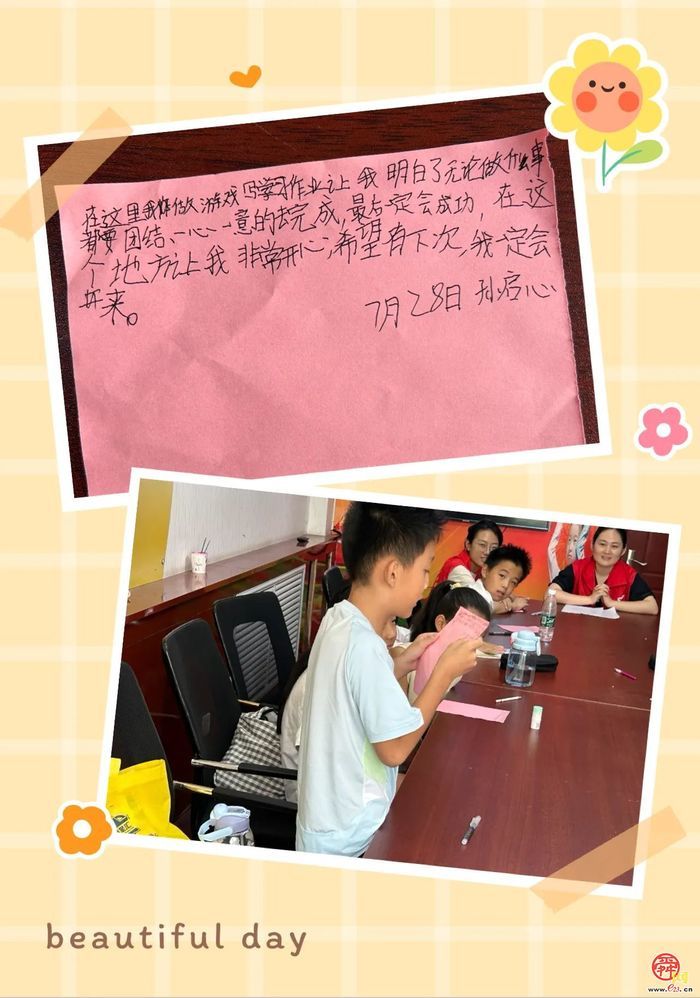 在这里我们做游戏写学习作业让我明白了无论做什么事
都要团结、一心一意的去完成,最后一定会成功,在这
个地方让我非常开心,希望有下次,我一定会
好来。
7月28日 孙启心
beautiful day
www.e23.cn